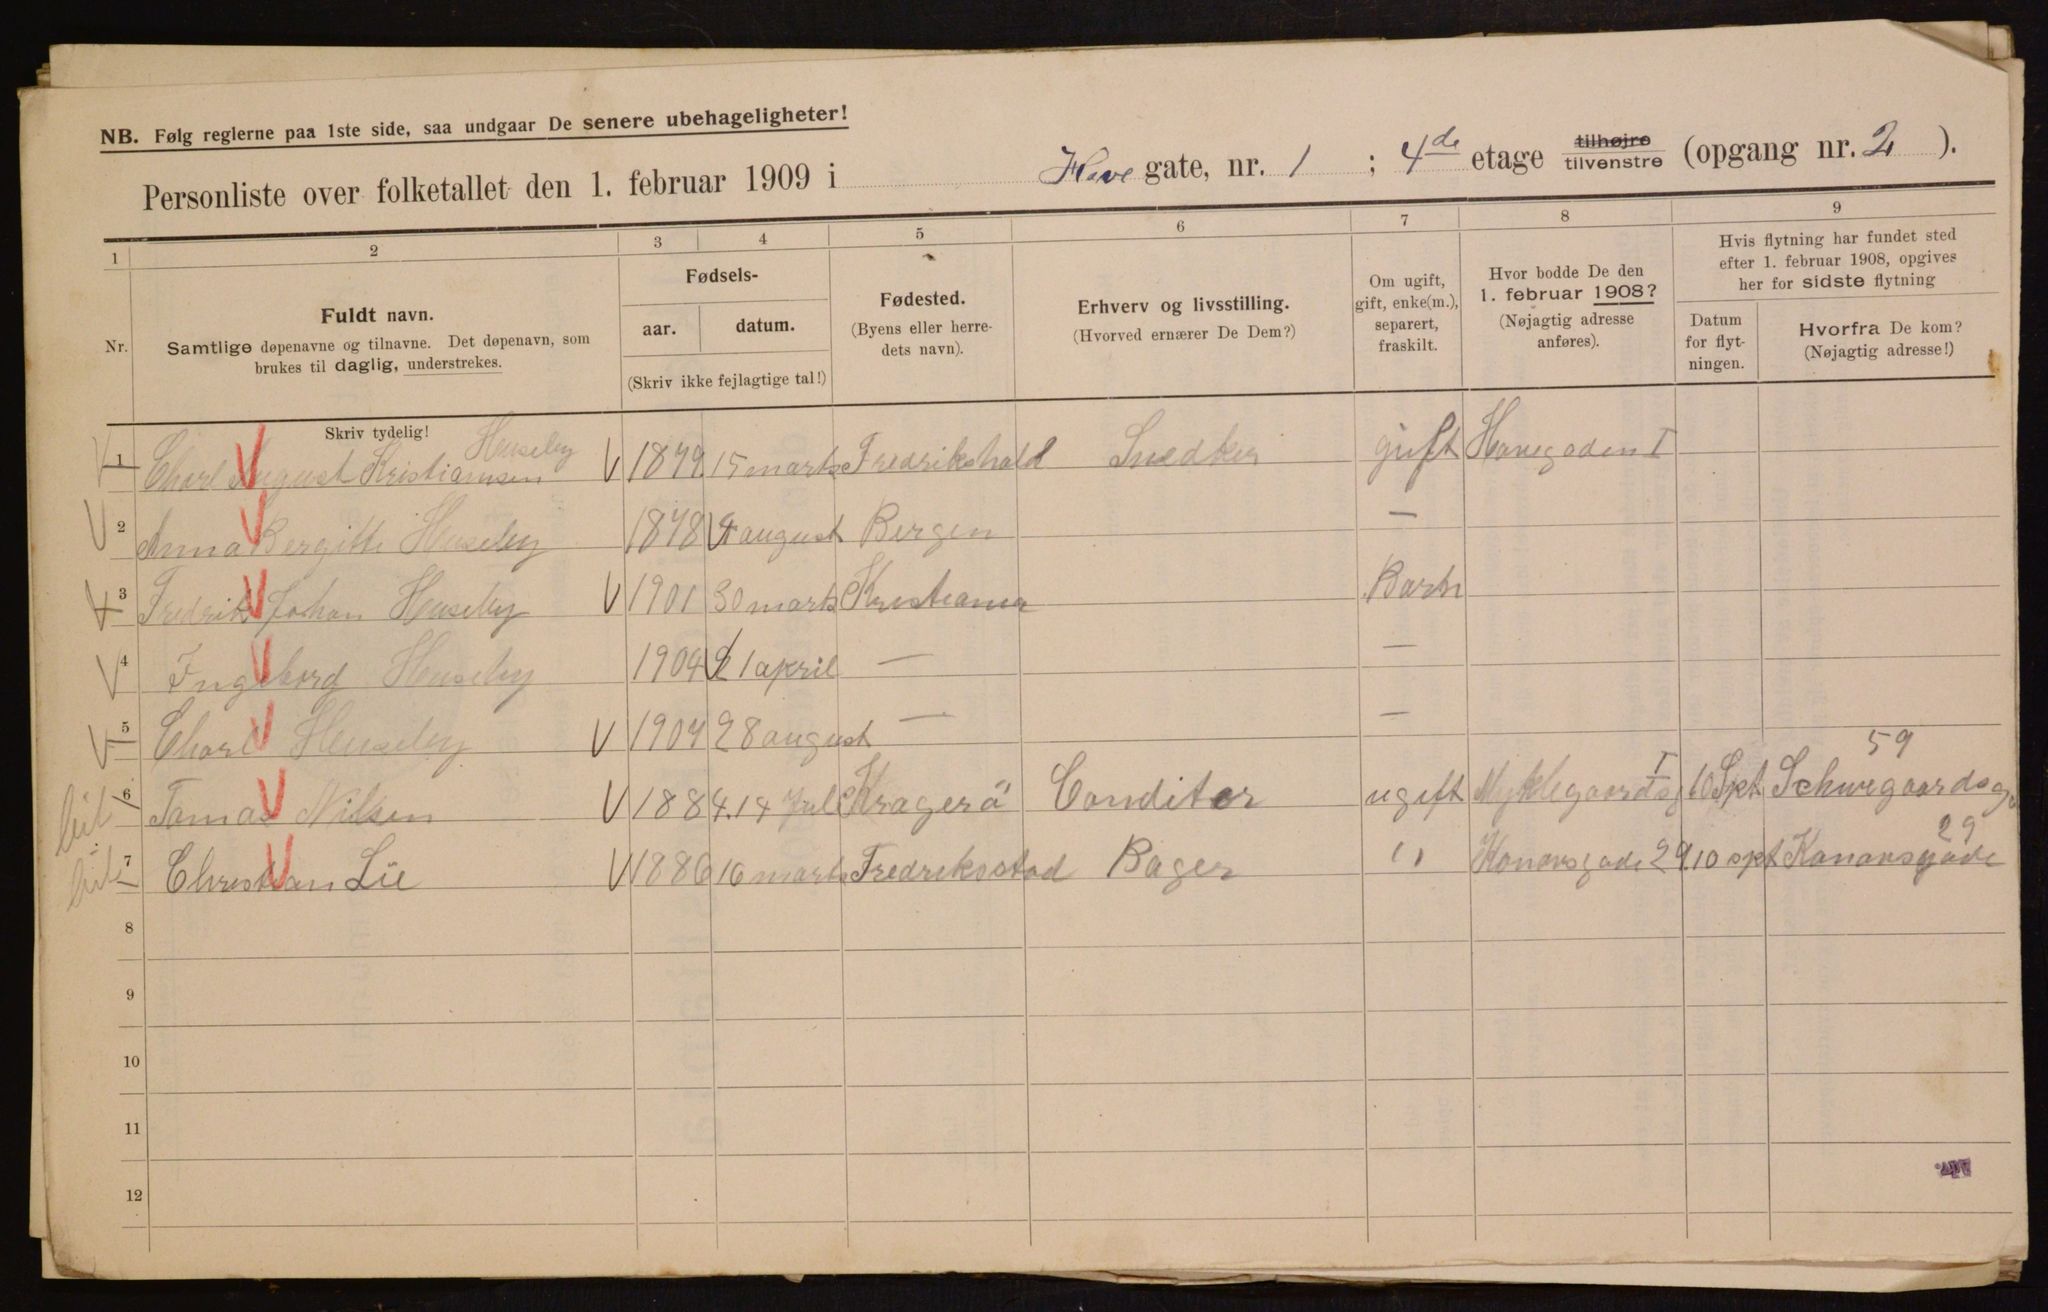 NB. Følg reglerne paa 1ste side, saa undgaar De senere ubehageligheter!
Personliste over folketallet den 1. februar 1909 i Have gate, nr. 1 ; 4de etage tilhøjre tilvenstre (opgang nr. 2 ).
1 2 3 4 5 6 7 8 9
Nr.
Fuldt navn.
Samtlige døpenavne og tilnavne. Det døpenavn, som
brukes til daglig, understrekes.
Skriv tydelig!
Fødsels-
aar. datum.
(Skriv ikke fejlagtige tal!)
Fødested.
(Byens eller herre-
dets navn).
Erhverv og livsstilling.
(Hvorved ernærer De Dem?)
Om ugift,
gift, enke(m.),
separert,
fraskilt.
Hvor bodde De den
1. februar 1908?
(Nøjagtig adresse
anføres).
Hvis flytning har fundet sted
efter 1. februar 1908, opgives
her for sidste flytning
Datum
for flyt-
ningen.
Hvorfra De kom?
(Nøjagtig adresse!)
Huseby
1 Charl August Kristiansen 1879 15 marts Fredrikshald Snedker gift Havegaden I
2 Anna Bergitte Huseby 1878 4 august Bergen —
3 Fredrik Johan Huseby 1901 30 marts Kristiania Barn
4 Ingeborg Huseby 1904 21 april — —
5 Charl Huseby 1907 28 august — —
I 59
6 Tomas Nilsen 1884. 14 Juli Kragerö Conditor ugift Myklegaardsg 10 Spt Schwegaardsg
29
7 Christian Lie 1886 16 marts Fredriksstad Bager " Kanonsgade 29 10 spt Kanonsgade
8
9
10
11
12